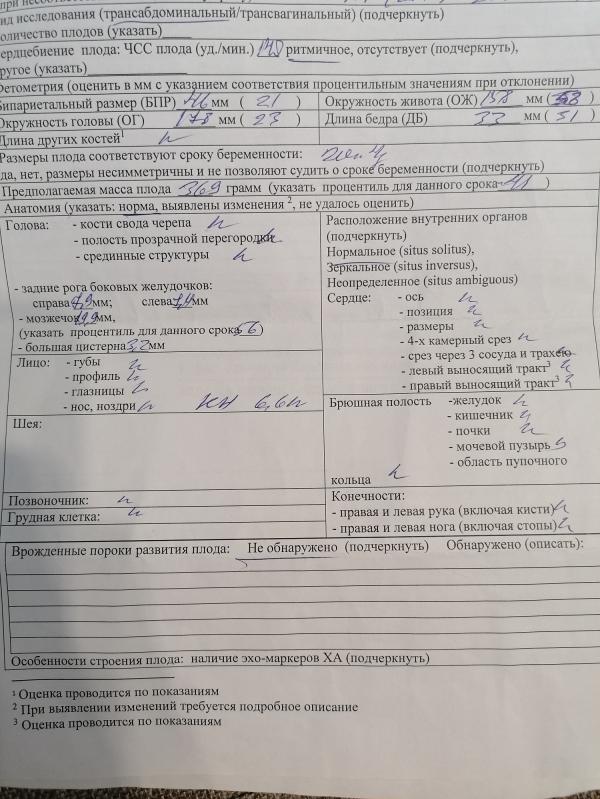 ид исследования (трансабдоминальный/трансвагинальный) (подчеркнуть)
оличество плодов (указать)
ердцебиение плода: ЧСС плода (уд./мин.) ритмичное, отсутствует (подчеркнуть),
ругое (указать)
Фетометрия (оценить в мм с указанием соответствия процентильным значениям при отклонении)
Бипариетальный размер (БПР) 46 мм ( 21 ) Окружность живота (ОЖ) 158 мм ( )
Окружность головы (ОГ) 178 мм ( 23 ) Длина бедра (ДБ) 33 мм ( 51 )
Длина других костей¹ н
Размеры плода соответствуют сроку беременности:
да, нет, размеры несимметричны и не позволяют судить о сроке беременности (подчеркнуть)
Предполагаемая масса плода 369 грамм (указать процентиль для данного срока )
Анатомия (указать: норма, выявлены изменения ², не удалось оценить)
Голова: - кости свода черепа н
- полость прозрачной перегородки н
- срединные структуры н
- задние рога боковых желудочков:
справа мм; слева мм
- мозжечок мм,
(указать процентиль для данного срока 56 )
- большая цистерна 3,2 мм
Лицо: - губы н
- профиль н
- глазницы н
- нос, ноздри н КН 6,6
Шея:
Позвоночник: н
Грудная клетка: н
Расположение внутренних органов
(подчеркнуть)
Нормальное (situs solitus),
Зеркальное (situs inversus),
Неопределенное (situs ambiguous)
Сердце: - ось н
- позиция н
- размеры н
- 4-х камерный срез н
- срез через 3 сосуда и трахею
- левый выносящий тракт³ н
- правый выносящий тракт³ н
Брюшная полость -желудок н
- кишечник н
- почки н
- мочевой пузырь
- область пупочного
кольца н
Конечности:
- правая и левая рука (включая кисти) н
- правая и левая нога (включая стопы) н
Врожденные пороки развития плода: Не обнаружено (подчеркнуть) Обнаружено (описать):
Особенности строения плода: наличие эхо-маркеров ХА (подчеркнуть)
¹ Оценка проводится по показаниям
² При выявлении изменений требуется подробное описание
³ Оценка проводится по показаниям